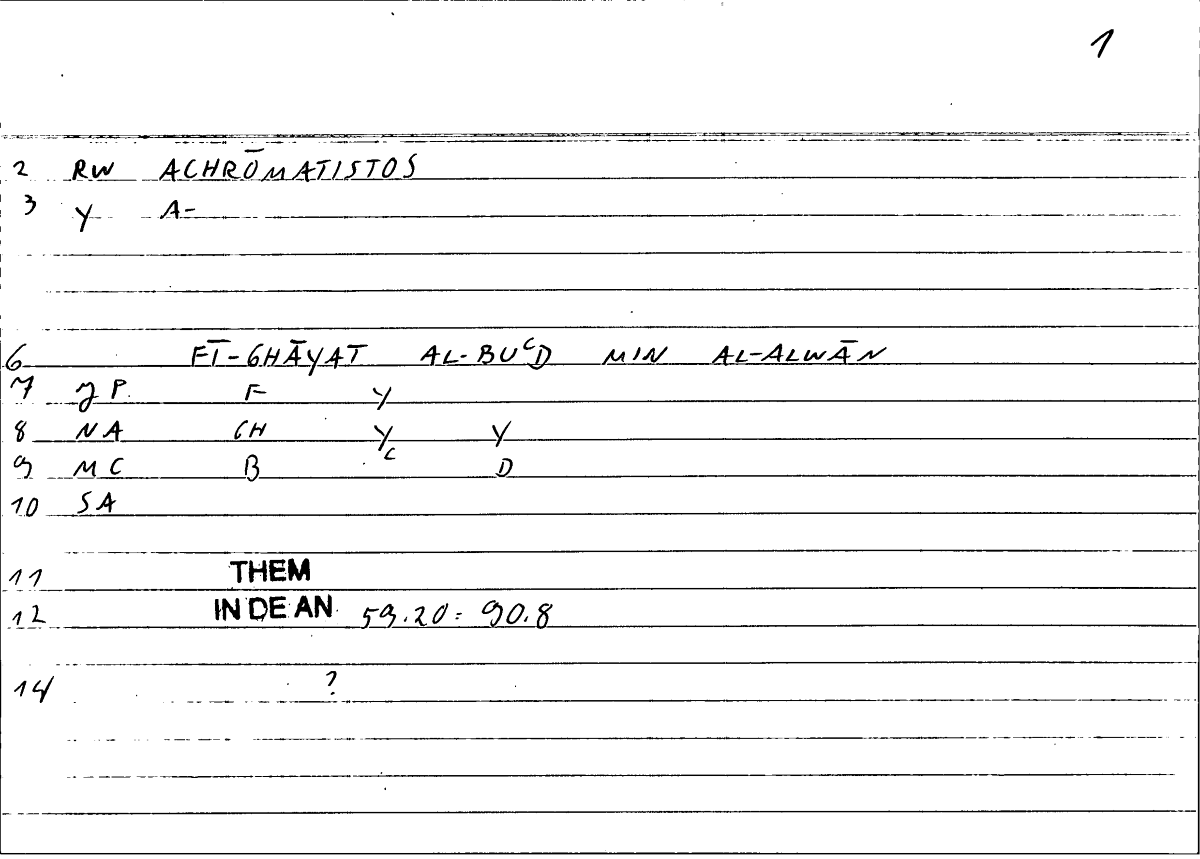 1
2 RW ACHRŌMATISTOS
3 Y A-
6 FĪ-GHĀYAT AL-BUᶜD MIN AL-ALWĀN
7 P. F Y
8 NA CH Y Y
9 MC B C D
10 SA
11 THEM
12 IN DE AN 59.20: 90.8
14 ?